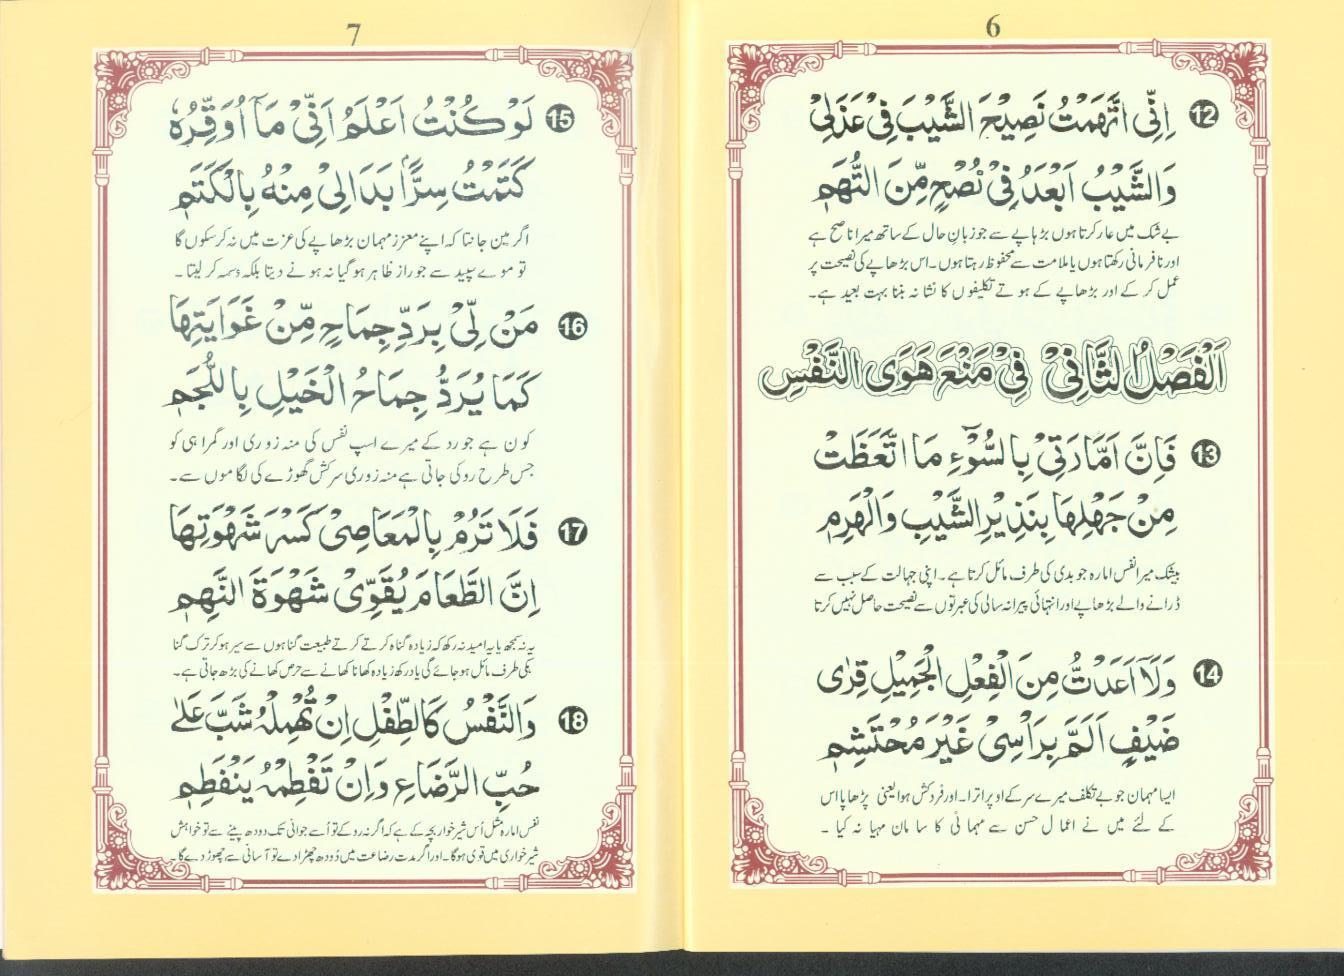 6
12 اِنِّى اتَّهَمْتُ نَصِيْحَ الشَّيْبَ فِىْ عَذَلِىْ
وَالشَّيْبُ اَبْعَدُ فِىْ نُصْحٍ مِّنَ التُّهَمٖ
بے شک میں عار کرتا ہوں بڑہاپے سے جو زبانِ حال کے ساتھ میرا ناصح ہے
اور نافرمانی رکھتا ہوں یا ملامت سے محفوظ رہتا ہوں۔ اس بڑھاپے کی نصیحت پر
عمل کر کے اور بڑھاپے کے ہوتے تکلیفوں کا نشانہ بننا بہت بعید ہے۔
اَلْفَصْلُ الثَّانِىْ فِىْ مَنْعَ هَوَى النَّفْسِ
13 فَاِنَّ اَمَّارَتِىْ بِالسُّوْٓءِ مَا اتَّعَظَتْ
مِنْ جَهْلِهَا بِنَذِيْرِ الشَّيْبِ وَالْهَرِمٖ
بیشک میرا نفس امارہ جو بدی کی طرف مائل کرتا ہے۔ اپنی جہالت کے سبب سے
ڈرانے والے بڑھاپے اور انتہائی پیرانہ سالی کی عبرتوں سے نصیحت حاصل نہیں کرتا
14 وَلَآ اَعَدْتُّ مِنَ الْفِعْلِ الْجَمِيْلِ قِرٰى
ضَيْفٍ اَلَمَّ بِرَاْسِىْ غَيْرَ مُحْتَشِمٖ
ایسا مہمان جو بے تکلف میرے سر کے اوپر اترا۔ اور فردکش ہوا یعنی بڑھاپا اس
کے لئے میں نے اعمال حسن سے مہمائی کا سامان مہیا نہ کیا ۔
7
15 لَوْ كُنْتُ اَعْلَمُ اَنِّىْ مَآ اُوَقِّرُهٗ
كَتَمْتُ سِرًّا بَدَالِىْ مِنْهُ بِالْكَتَمٖ
اگر مین جانتا کہ اپنے معزز مہمان بڑھاپے کی عزت میں نہ کر سکوں گا
تو موے سپید سے جو راز ظاہر ہو گیا نہ ہونے دیتا بلکہ وسمہ کر لیتا ۔
16 مَنْ لِّىْ بِرَدِّ جِمَاحٍ مِّنْ غَوَايَتِهَا
كَمَا يُرَدُّ جِمَاحُ الْخَيْلِ بِاللُّجَمٖ
کون ہے جو رد کے میرے اسپ نفس کی منہ زوری اور گمراہی کو
جس طرح روکی جاتی ہے منہ زوری سرکش گھوڑے کی لگاموں سے۔
17 فَلَا تَرُمْ بِالْمَعَاصِىْ كَسْرَ شَهْوَتِهَا
اِنَّ الطَّعَامَ يُقَوِّىْ شَهْوَةَ النَّهِمٖ
یہ نہ سمجھ یا یہ امید نہ رکھ کہ زیادہ گناہ کرتے کرتے طبیعت گناہوں سے سیر ہو کر ترک گنا
ہکی طرف مائل ہو جائے گی یاد رکھ زیادہ کھانا کھانے سے حرص کھانے کی بڑھ جاتی ہے۔
18 وَالنَّفْسُ كَالطِّفْلِ اِنْ تُهْمِلْهُ شَبَّ عَلٰى
حُبِّ الرَّضَاعِ وَاِنْ تَفْطِمْهُ يَنْفَطِمٖ
نفس امارہ مثل اُس شیرخوار بچہ کے ہے کہ اگر نہ روکے تو اُسے جوانی تک دودھ پینے سے تو خواہش
شیرخواری میں قوی ہوگا۔ اور اگر مدت رضاعت میں دُودھ چھڑا دے تو آسانی سے چھوڑ دے گا۔